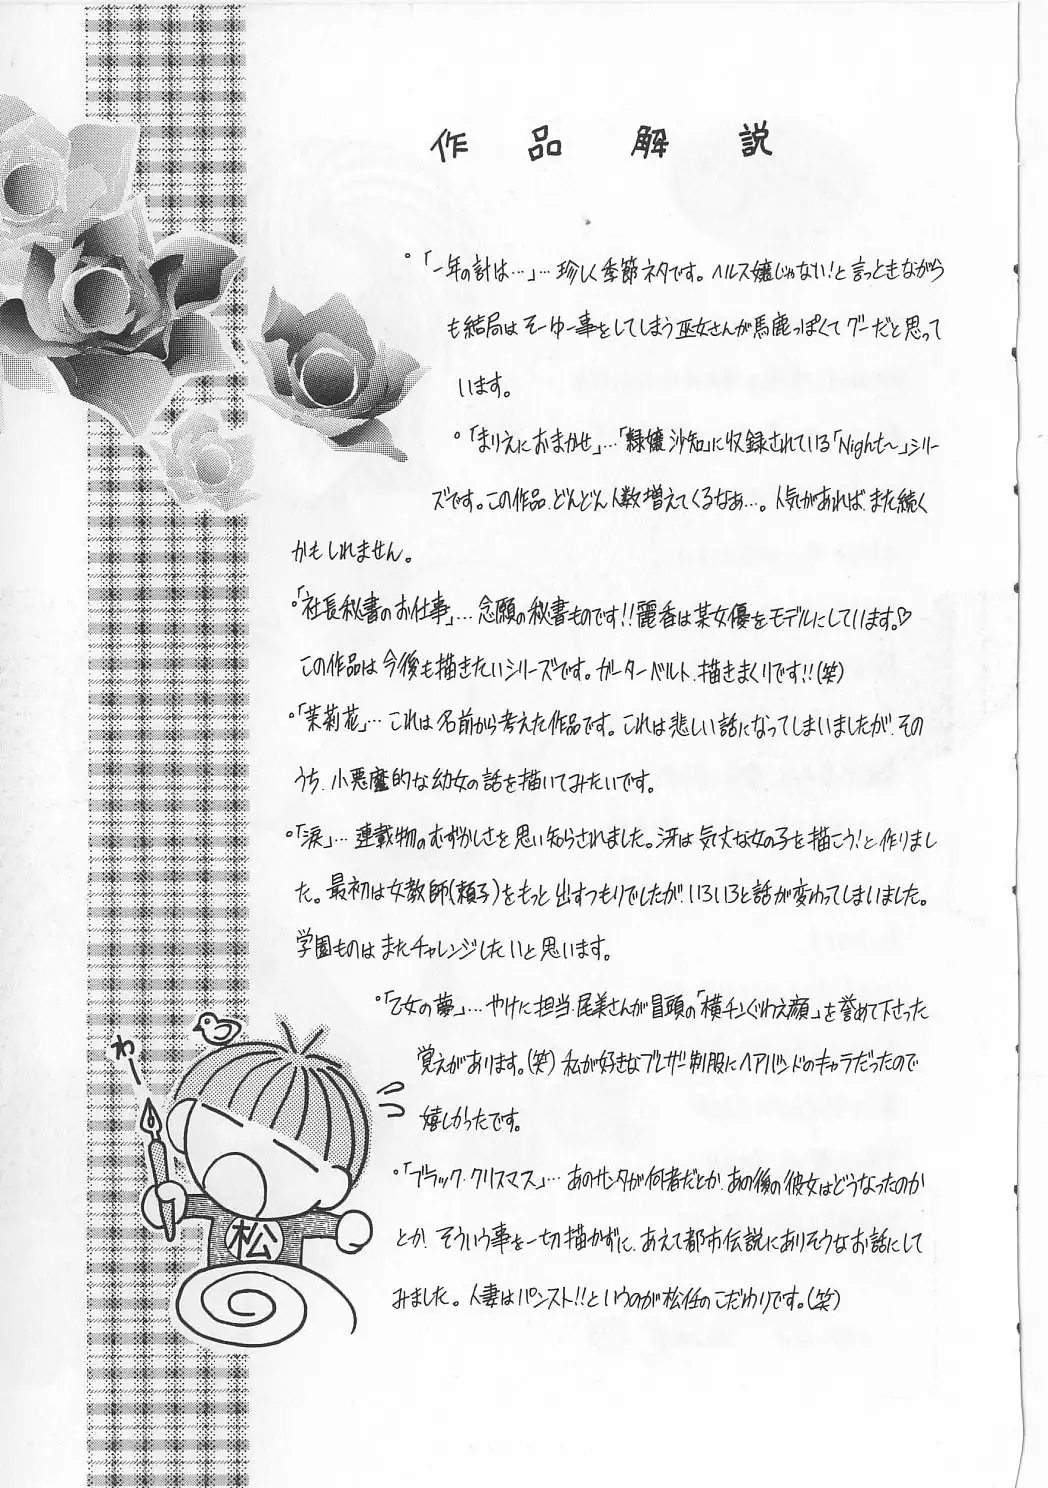 作品解説
°「一年の計は…」… 珍しく季節ネタです。ヘルス嬢じゃない！と言っときながら
も結局はそーゆー事をしてしまう巫女さんが馬鹿っぽくてグーだと思って
います。
°「まりえにおまかせ」…「隷嬢沙知」に収録されている「Night〜」シリー
ズです。この作品、どんどん人数増えてくるなぁ…。人気があれば、また続く
かもしれません。
°「社長秘書のお仕事」… 念願の秘書ものです!!麗香は某女優をモデルにしています。♡
この作品は今後も描きたいシリーズです。ガーターベルト、描きまくりです!!(笑)
°「茉莉花」… これは名前から考えた作品です。これは悲しい話になってしまいましたが、その
うち、小悪魔的な幼女の話を描いてみたいです。
°「涙」… 連載物のむずかしさを思い知らされました。冴は気丈な女の子を描こう！と作りまし
た。最初は女教師(頼子)をもっと出すつもりでしたが、いろいろと話が変わってしまいました。
学園ものはまたチャレンジしたいと思います。
°「乙女の夢」… やけに担当・尾美さんが冒頭の「横チンぐわえ顔」を誉めて下さった
覚えがあります。(笑) 私が好きなブレザー制服にヘアバンドのキャラだったので
嬉しかったです。
°「ブラック・クリスマス」… あのサンタが何者だとか、あの後の彼女はどうなったのか
とか、そういう事を一切描かずに、あえて都市伝説にありそうなお話にして
みました。人妻はパンスト!!というのが松任のこだわりです。(笑)
わー
松